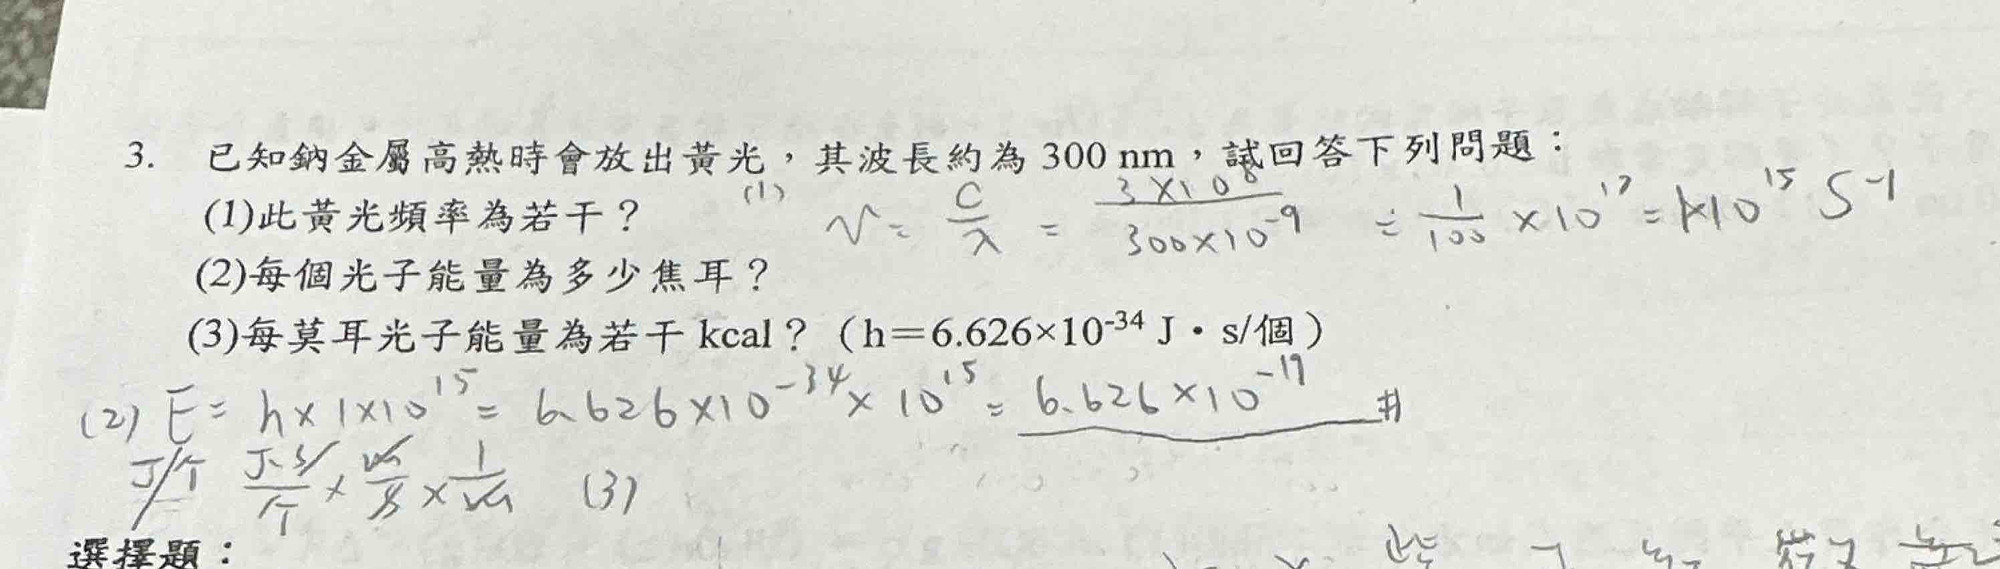 3. 已知鈉金屬高熱時會放出黃光，其波長約為 300 nm，試回答下列問題：
(1)此黃光頻率為若干？
(1) ν = C/λ = 3×10⁸/300×10⁻⁹ = 1/100 ×10¹⁷ = 1×10¹⁵ S⁻¹
(2)每個光子能量為多少焦耳？
(3)每莫耳光子能量為若干 kcal？（h＝6.626×10⁻³⁴ J・s/個）
(2) E = h×1×10¹⁵ = 6.626×10⁻³⁴×10¹⁵ = 6.626×10⁻¹⁹ #
J/个 J·s/个 × m/s × 1/m (3)
選擇題：